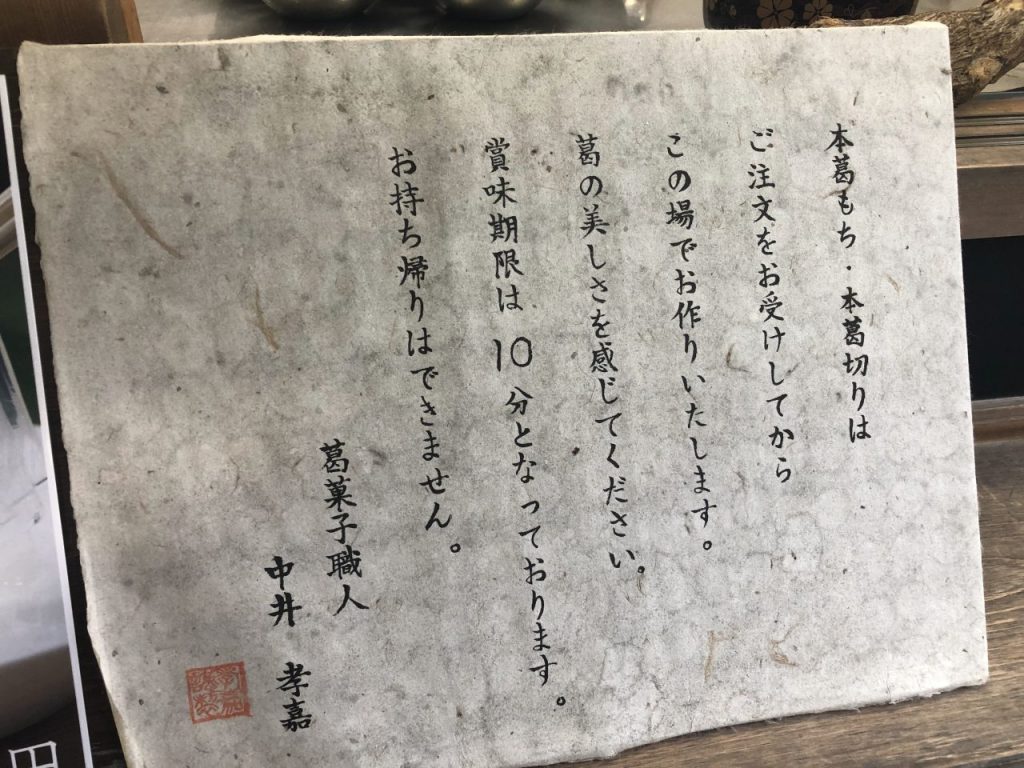 本葛もち・本葛切りは
ご注文をお受けしてから
この場でお作りいたします。
葛の美しさを感じてください。
賞味期限は10分となっております。
お持ち帰りはできません。
葛菓子職人
中井 孝嘉